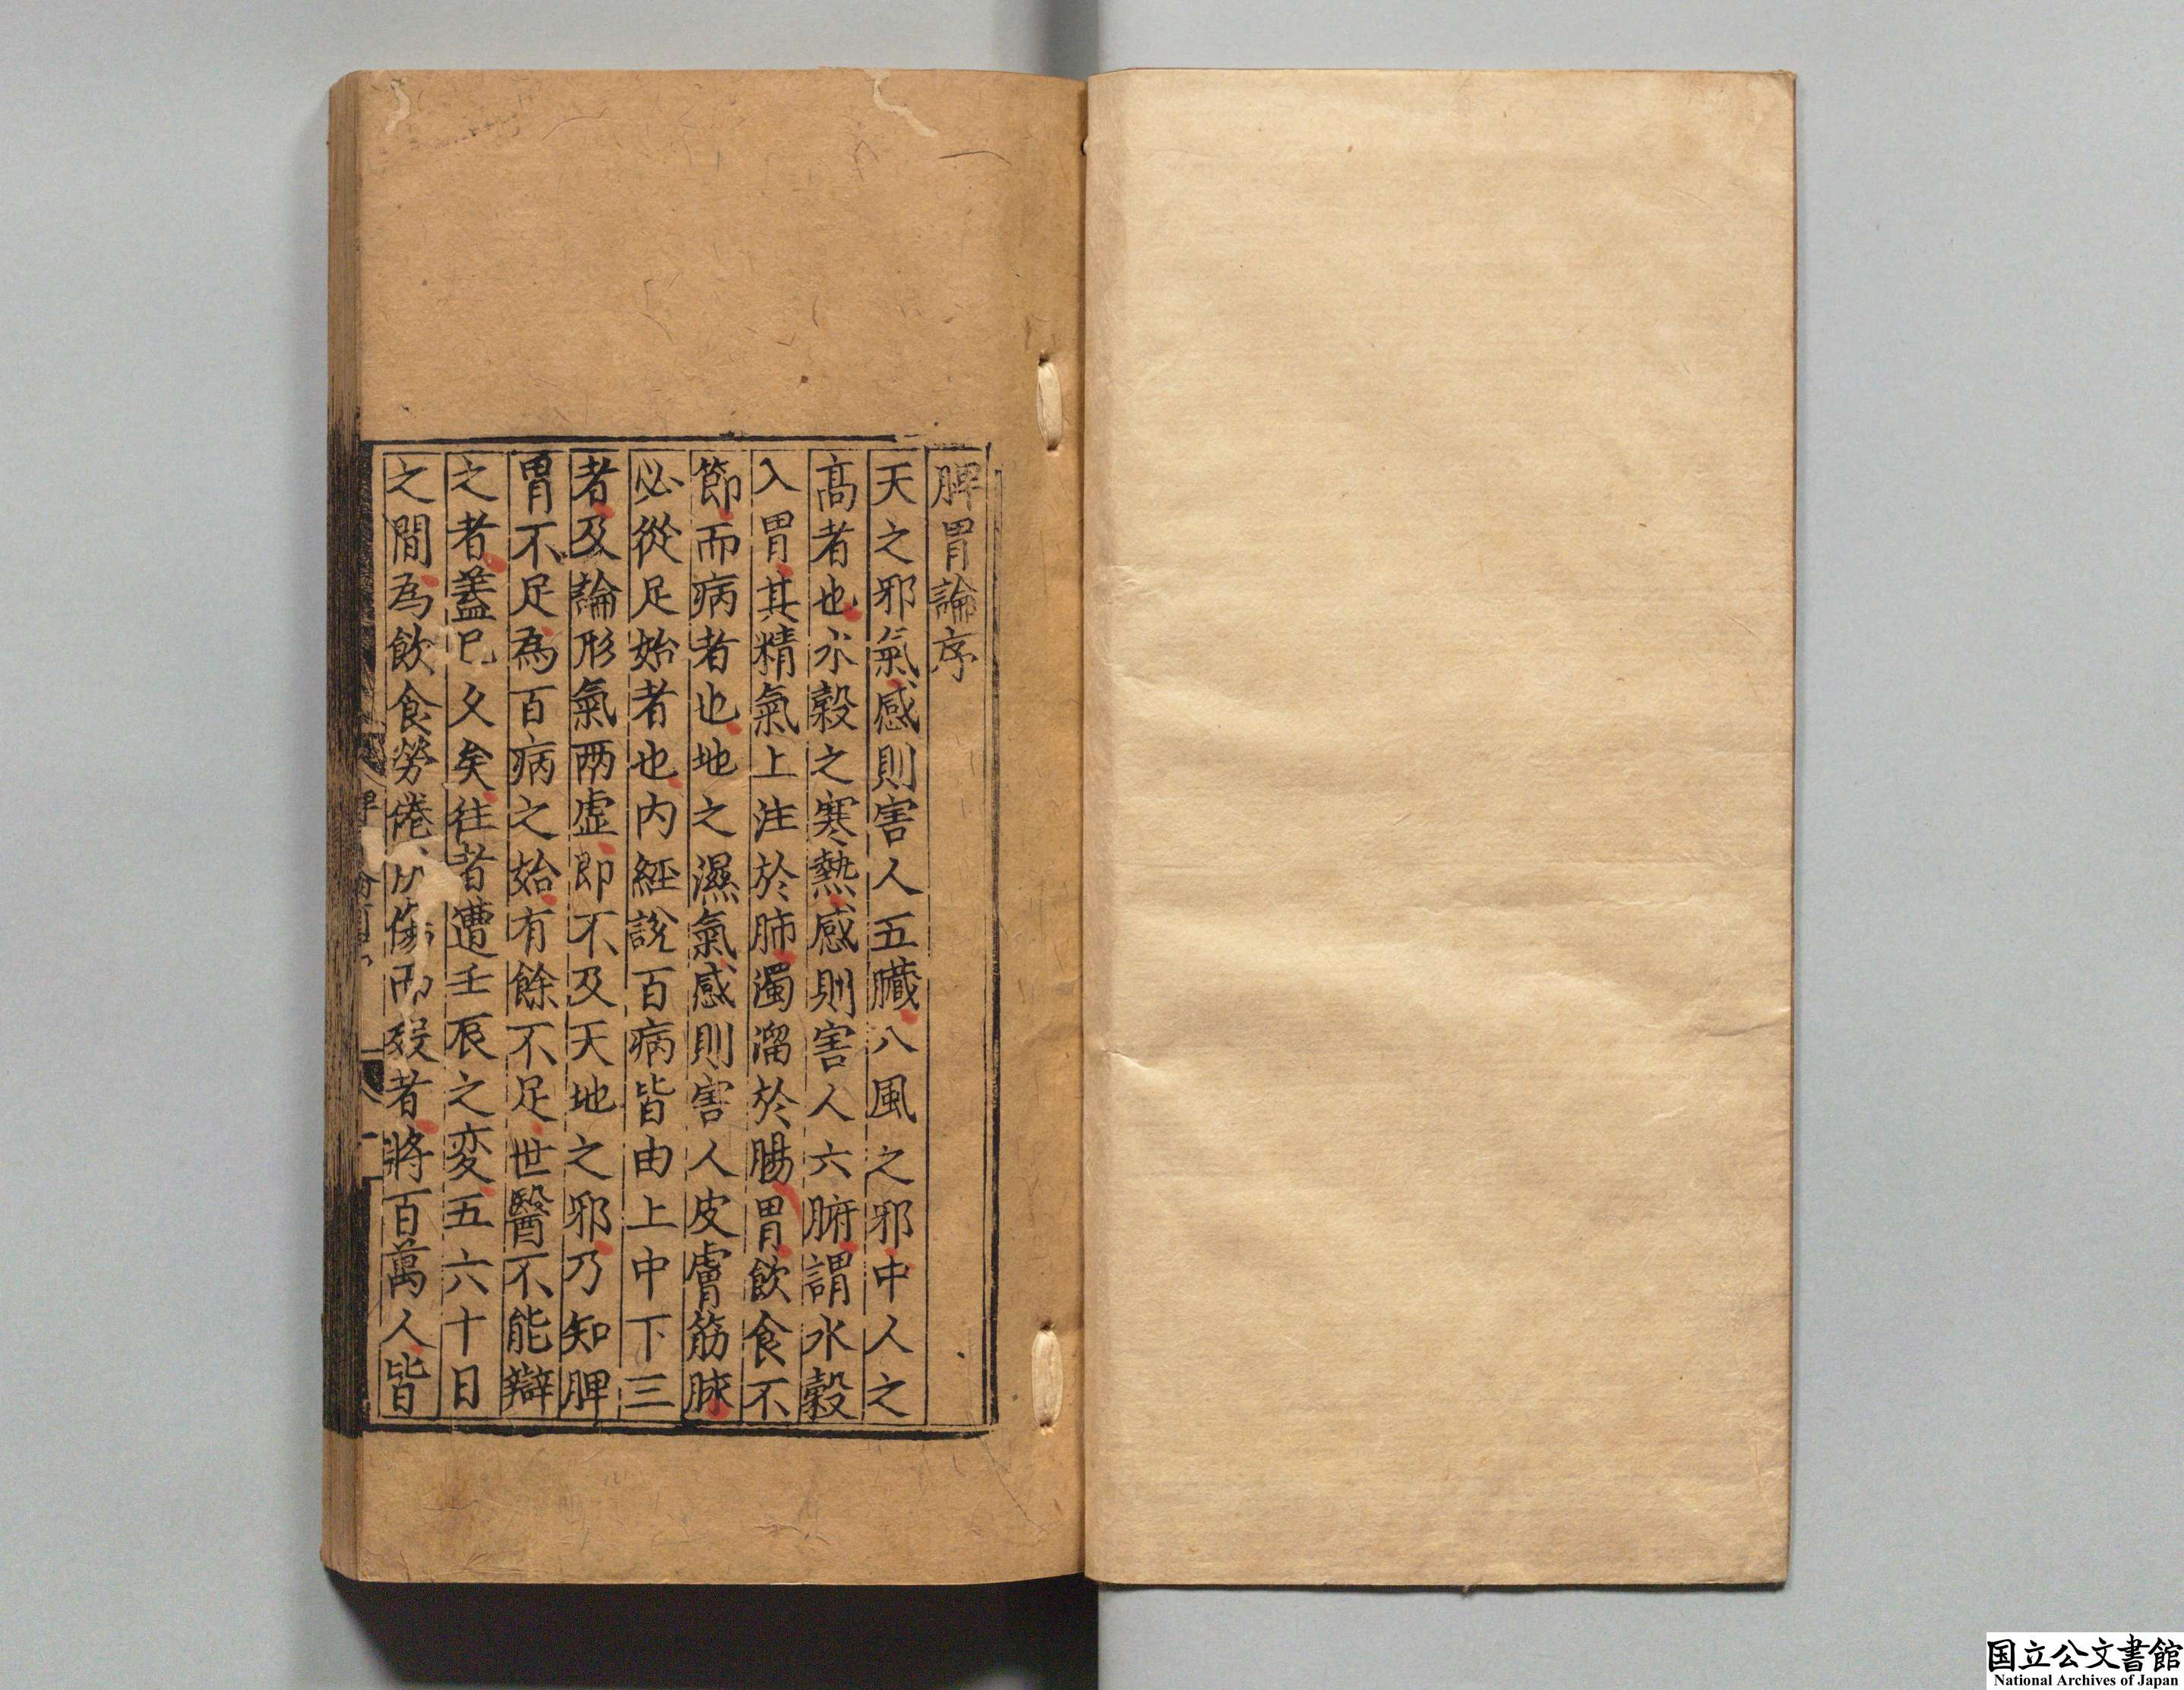 脾胃論序
天之邪氣感則害人五臟八風之邪中人之
髙者也水穀之寒熱感則害人六腑謂水穀
入胃其精氣上注於肺濁溜於腸胃飲食不
節而病者也地之濕氣感則害人皮膚筋脉
必從足始者也内經說百病皆由上中下三
者及論形氣两虚即不及天地之邪乃知脾
胃不足為百病之始有餘不足世醫不能辯
之者蓋已久矣往者遭壬辰之変五六十日
之間為飲食勞倦所傷而歿者將百萬人皆
国立公文書館
National Archives of Japan